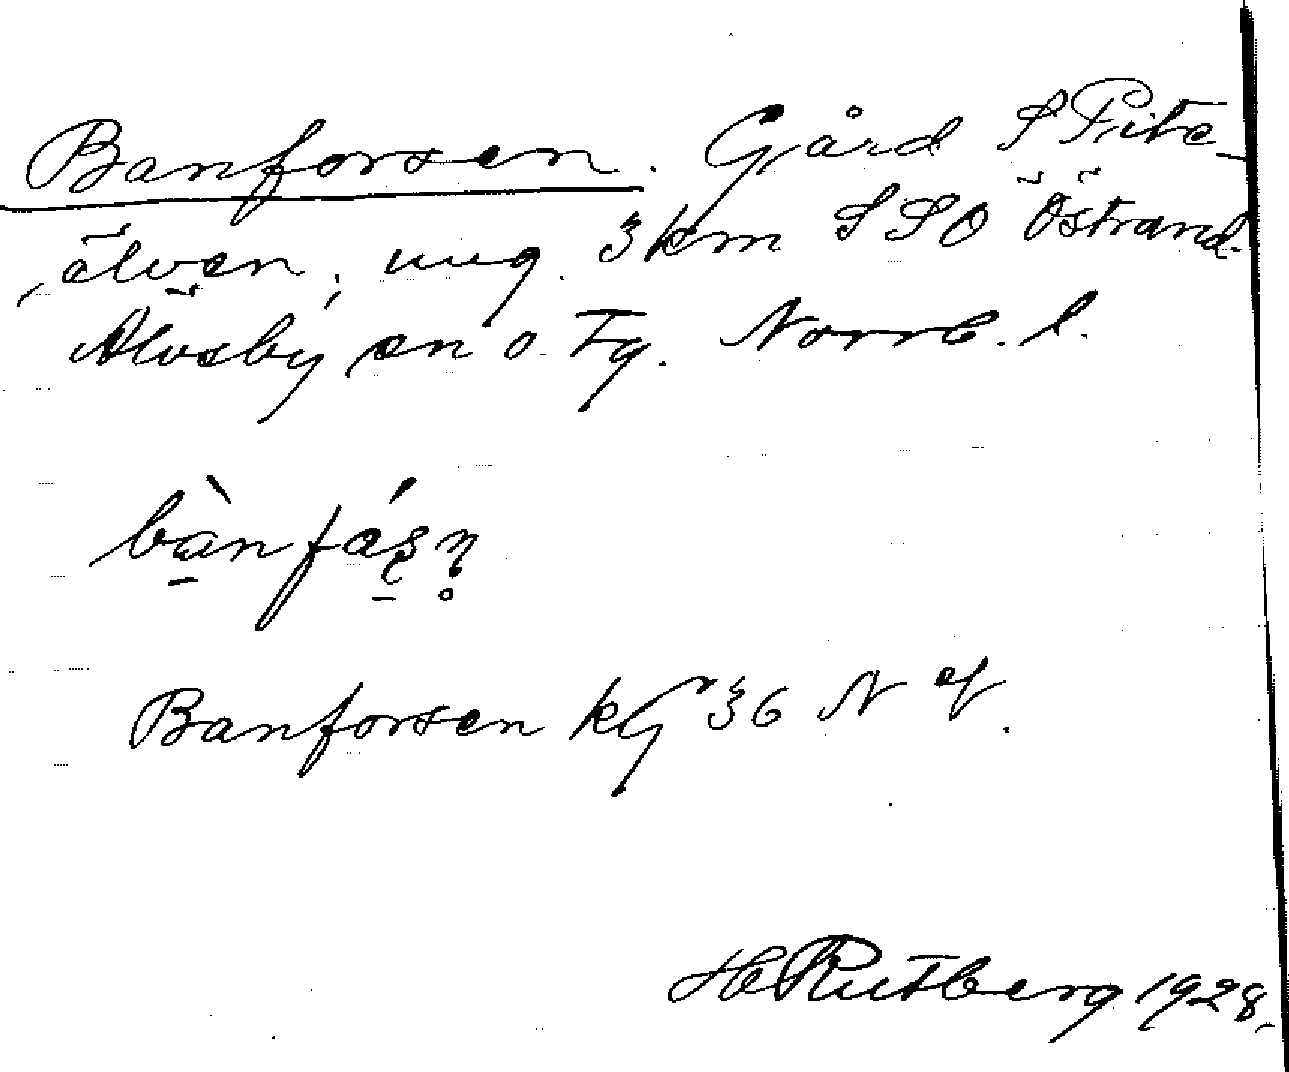 Banforsen. Gård S Pite-
älven, ung. 3 km S SO Östrand.
Älvsby sn o. tg. Norrb. l.
bànfáʂn̥
Banforsen kg 36 N of.
H Rutberg 1928.